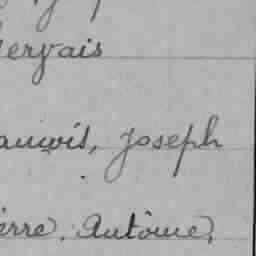 ervais
Joseph
erre. Antoine,